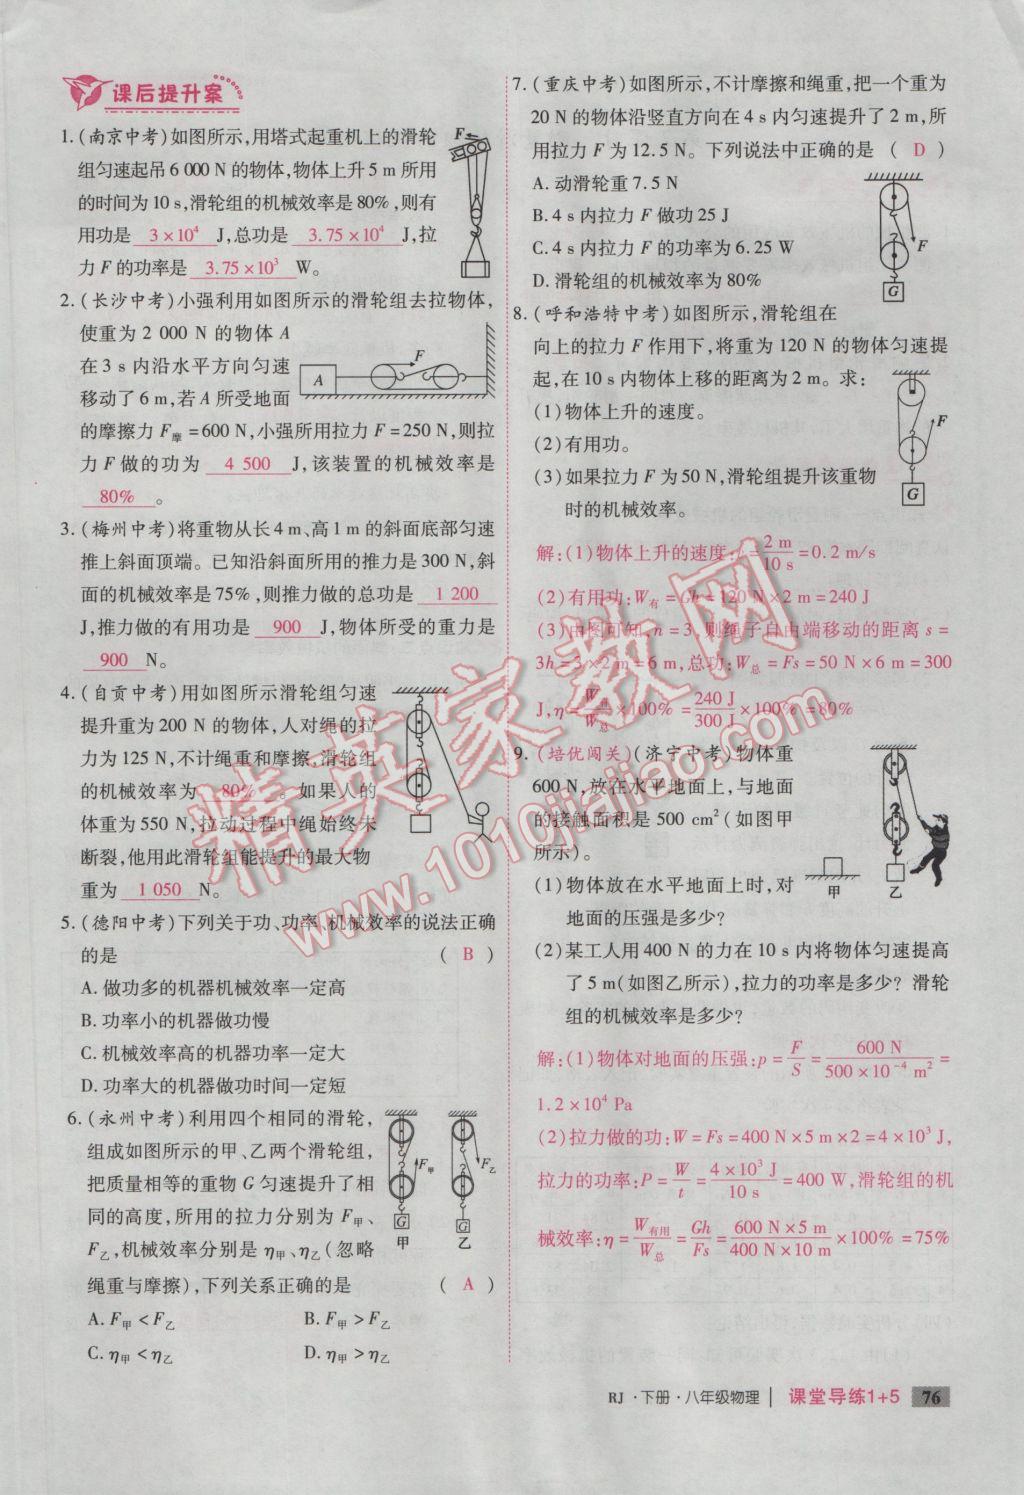 课后提升案
1.(南京中考)如图所示,用塔式起重机上的滑轮
组匀速起吊6 000 N的物体,物体上升5 m所用
的时间为10 s,滑轮组的机械效率是80%,则有
用功是 3×10⁴ J,总功是 3.75×10⁴ J,拉
力F的功率是 3.75×10³ W。
F
2.(长沙中考)小强利用如图所示的滑轮组去拉物体,
使重为2 000 N的物体A
在3 s内沿水平方向匀速
移动了6 m,若A所受地面
的摩擦力F摩=600 N,小强所用拉力F=250 N,则拉
力F做的功为 4 500 J,该装置的机械效率是
80% 。
A F
3.(梅州中考)将重物从长4 m、高1 m的斜面底部匀速
推上斜面顶端。已知沿斜面所用的推力是300 N,斜
面的机械效率是75%,则推力做的总功是 1 200
J,推力做的有用功是 900 J,物体所受的重力是
900 N。
4.(自贡中考)用如图所示滑轮组匀速
提升重为200 N的物体,人对绳的拉
力为125 N,不计绳重和摩擦,滑轮组
的机械效率为 80% 。如果人的
体重为550 N,拉动过程中绳始终未
断裂,他用此滑轮组能提升的最大物
重为 1 050 N。
5.(德阳中考)下列关于功、功率、机械效率的说法正确
的是 ( B )
A. 做功多的机器机械效率一定高
B. 功率小的机器做功慢
C. 机械效率高的机器功率一定大
D. 功率大的机器做功时间一定短
6.(永州中考)利用四个相同的滑轮,
组成如图所示的甲、乙两个滑轮组,
把质量相等的重物G匀速提升了相
同的高度,所用的拉力分别为F甲、
F乙,机械效率分别是η甲、η乙(忽略
绳重与摩擦),下列关系正确的是 ( A )
A. F甲<F乙 B. F甲>F乙
C. η甲<η乙 D. η甲>η乙
F甲 F乙
G G
甲 乙
7.(重庆中考)如图所示,不计摩擦和绳重,把一个重为
20 N的物体沿竖直方向在4 s内匀速提升了2 m,所
用拉力F为12.5 N。下列说法中正确的是 ( D )
A. 动滑轮重7.5 N
B. 4 s内拉力F做功25 J
C. 4 s内拉力F的功率为6.25 W
D. 滑轮组的机械效率为80%
F
G
8.(呼和浩特中考)如图所示,滑轮组在
向上的拉力F作用下,将重为120 N的物体匀速提
起,在10 s内物体上移的距离为2 m。求:
(1)物体上升的速度。
(2)有用功。
(3)如果拉力F为50 N,滑轮组提升该重物
时的机械效率。
F
G
解:(1)物体上升的速度:v=2 m/10 s=0.2 m/s
(2)有用功:W有=Gh=120 N×2 m=240 J
(3)由图可知,n=3,则绳子自由端移动的距离s=
3h=3×2 m=6 m,总功:W总=Fs=50 N×6 m=300
J,η=W有/W总×100%=240 J/300 J×100%=80%
9.(培优闯关)(济宁中考)物体重
600 N,放在水平地面上,与地面
的接触面积是500 cm²(如图甲
所示)。
(1)物体放在水平地面上时,对
地面的压强是多少?
(2)某工人用400 N的力在10 s内将物体匀速提高
了5 m(如图乙所示),拉力的功率是多少? 滑轮
组的机械效率是多少?
甲 乙
解:(1)物体对地面的压强:p=F/S=600 N/500×10⁻⁴ m²=
1.2×10⁴ Pa
(2)拉力做的功:W=Fs=400 N×5 m×2=4×10³ J,
拉力的功率:P=W/t=4×10³ J/10 s=400 W,滑轮组的机
械效率:η=W有用/W总=Gh/Fs=600 N×5 m/400 N×10 m×100%=75%
精英家教网
www.1010jiajiao.com
RJ·下册·八年级物理 课堂导练1+5 76